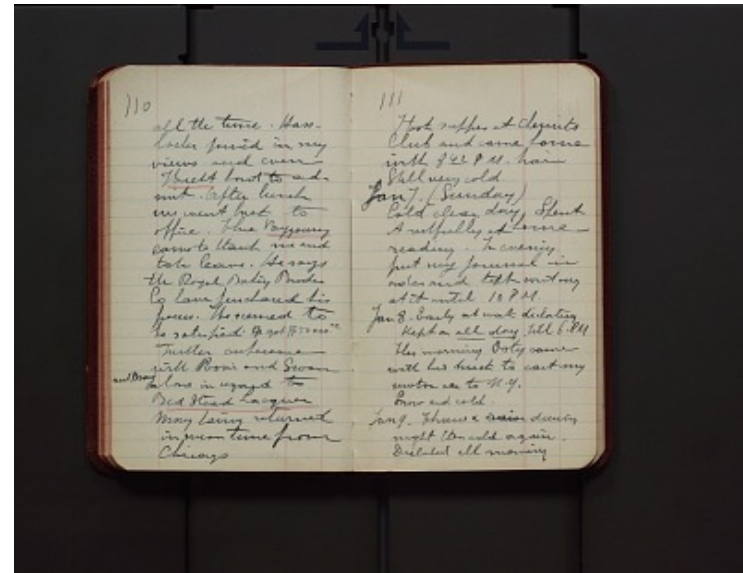 110
all the time. Has-
locher joined in my
views and even
Thuett had to ad-
mit. After lunch
we went back to
office. Then
came to thank me and
take leave. He says
the Royal Baking Powder
Co have purchased his
process. He seemed to
be satisfied.
Further conference
with Rossi and Swan
alone in regard to
Bed Stead Lacquer
May being returned
in mean time from
Chicago
111
Took supper at Chemists
Club and came home
with 8 P.M. train
Still very cold
Jan 7. (Sunday)
Cold clear day, Spent
it restfully at home
reading. In evening
put my journal in
order and kept writing
at it until 10 P.M.
Jan 8. Early at work dictating
Kept on all day till 6 P.M
This morning came
with his truck to cart my
motor car to N.Y.
Snow and cold.
Jan 9. Thaw & rain during
night then cold again.
Dictated all morning